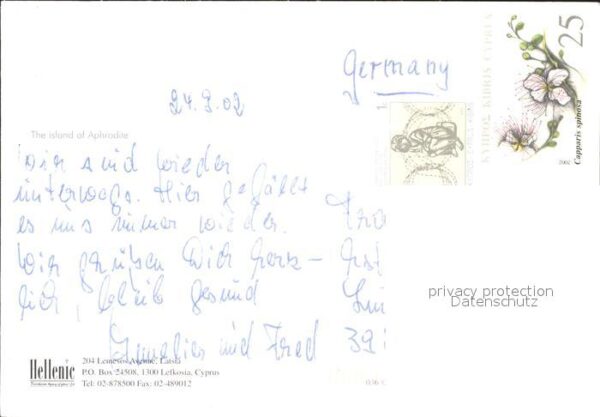 Germany
25
ΚΥΠΡΟΣ KIBRIS CYPRUS
Capparis spinosa
2002
24.9.02
The island of Aphrodite
Wir sind wieder
unterwegs. Hier gefällt
es uns immer wieder.
Wir grüßen Dich herz-
lich, bleib gesund
und Fred
39
privacy protection
Datenschutz
Hellenic
204 Lemesos Avenue, Latsia
P.O. Box 24508, 1300 Lefkosia, Cyprus
Tel: 02-878500 Fax: 02-489012